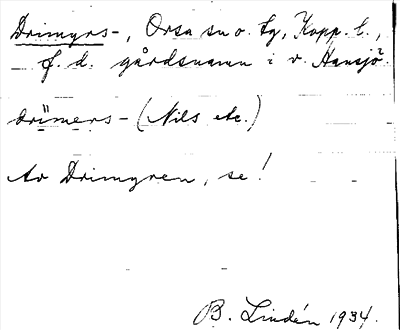 Drimyrs-, Orsa sn o. tg, Kopp. l.,
f. d. gårdsnamn i v. Hansjö.
drìmers- (Nils etc.)
Av Drimyren, se!
B. Lindén 1934.